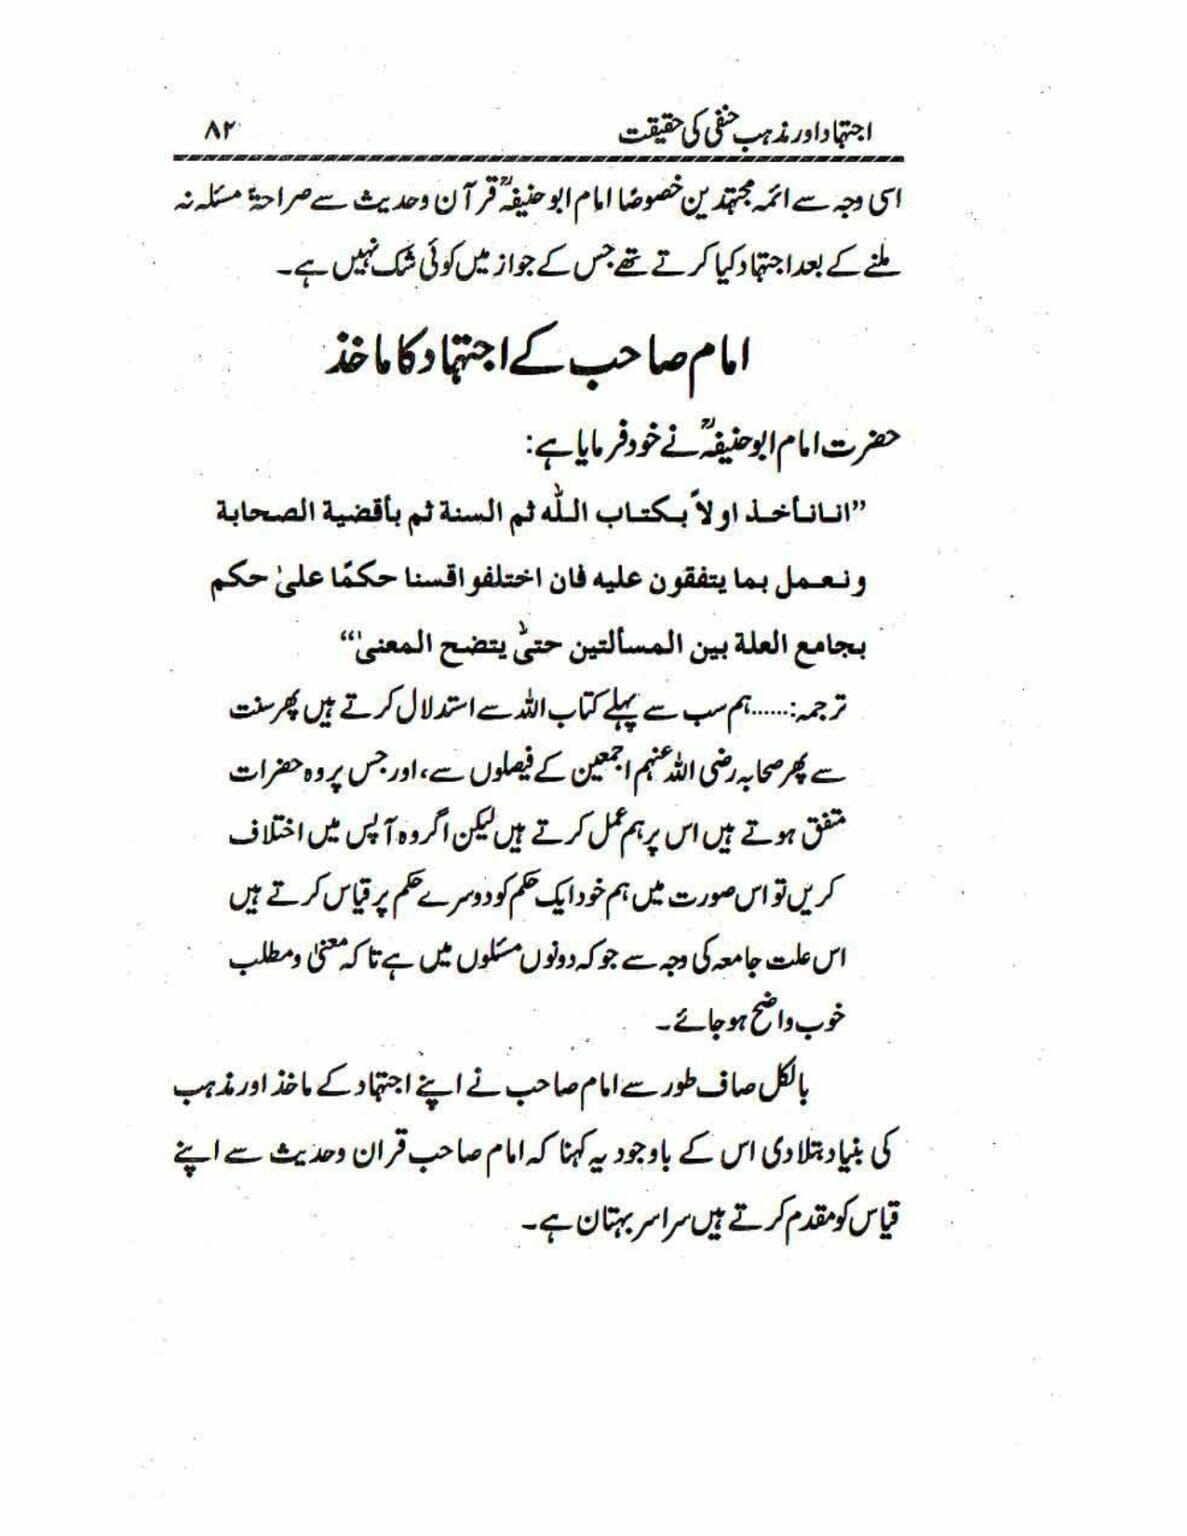 اجتہاد اور مذہب حنفی کی حقیقت ۸۲
اسی وجہ سے ائمہ مجتہدین خصوصًا امام ابو حنیفہؒ قرآن وحدیث سے صراحۃً مسئلہ نہ
ملنے کے بعد اجتہاد کیا کرتے تھے جس کے جواز میں کوئی شک نہیں ہے۔
امام صاحب کے اجتہاد کا ماخذ
حضرت امام ابو حنیفہؒ نے خود فرمایا ہے:
”انا نأخذ اولاً بكتاب اللّٰه ثم السنة ثم بأقضية الصحابة
ونعمل بما يتفقون عليه فان اختلفوا قسنا حكمًا علىٰ حكم
بجامع العلة بين المسألتين حتىّٰ يتضح المعنىٰ“
ترجمہ:......ہم سب سے پہلے کتاب اللہ سے استدلال کرتے ہیں پھر سنت
سے پھر صحابہ رضی اللہ عنہم اجمعین کے فیصلوں سے، اور جس پر وہ حضرات
متفق ہوتے ہیں اس پر ہم عمل کرتے ہیں لیکن اگر وہ آپس میں اختلاف
کریں تو اس صورت میں ہم خود ایک حکم کو دوسرے حکم پر قیاس کرتے ہیں
اس علت جامعہ کی وجہ سے جو کہ دونوں مسئلوں میں ہے تاکہ معنیٰ ومطلب
خوب واضح ہو جائے۔
بالکل صاف طور سے امام صاحب نے اپنے اجتہاد کے ماخذ اور مذہب
کی بنیاد بتلا دی اس کے باوجود یہ کہنا کہ امام صاحب قران وحدیث سے اپنے
قیاس کو مقدم کرتے ہیں سراسر بہتان ہے۔